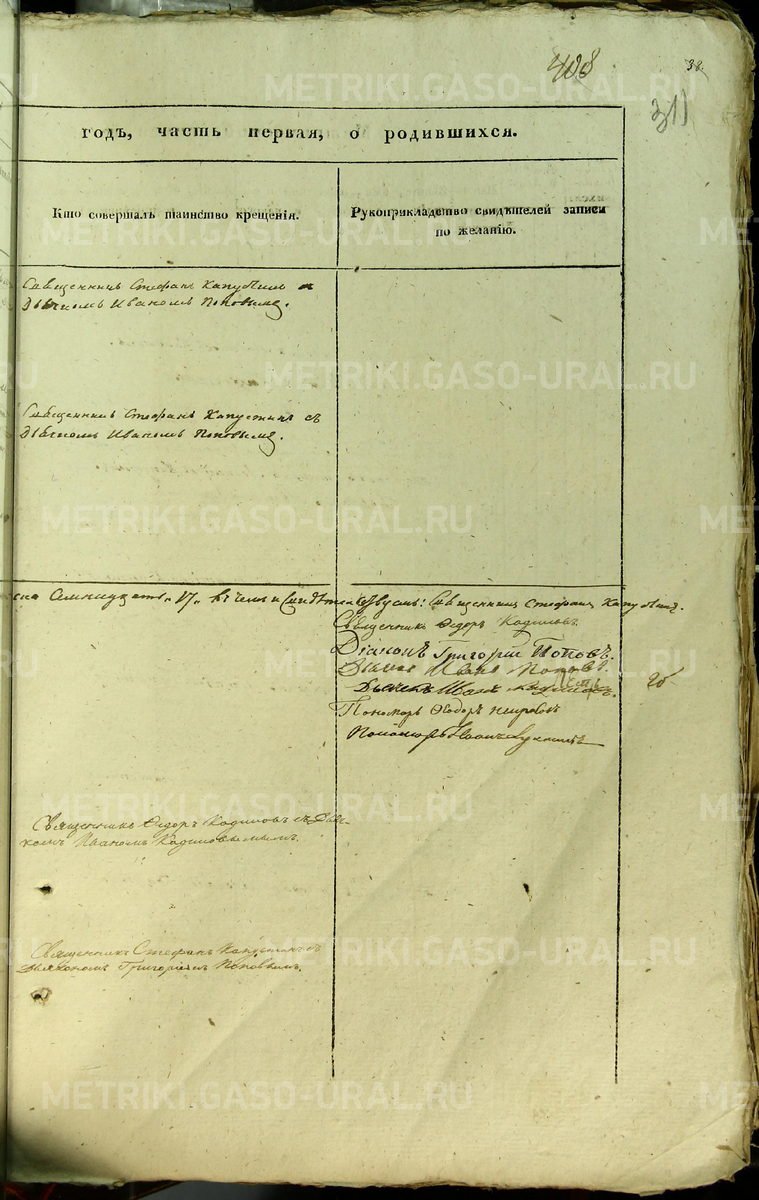 408
38.
311
METRIKI.GASO-URAL.RU
годъ, часть первая, о родившихся.
Кто совершалъ таинство крещенія.
Рукоприкладство свидѣтелей записи
по желанію.
Священникъ Стефанъ Капустинъ съ
дьячкомъ Иваномъ Поповымъ.
Священникъ Стефанъ Капустинъ съ
дьячкомъ Иваномъ Поповымъ.
Семнадцать 17 Священникъ Стефанъ Капустинъ.
Священникъ Ѳедоръ Кадиловъ
Діаконъ Григорій Поповъ
Дьячекъ Иванъ Поповъ
Дьячекъ Иванъ Кадиловъ.
Пономарь Ѳеодоръ
Пономарь
Священникъ Ѳедоръ Кадиловъ съ дьяч-
комъ Иваномъ Кадиловымъ.
Священникъ Стефанъ Капустинъ съ
Діакономъ Григоріемъ Поповымъ.